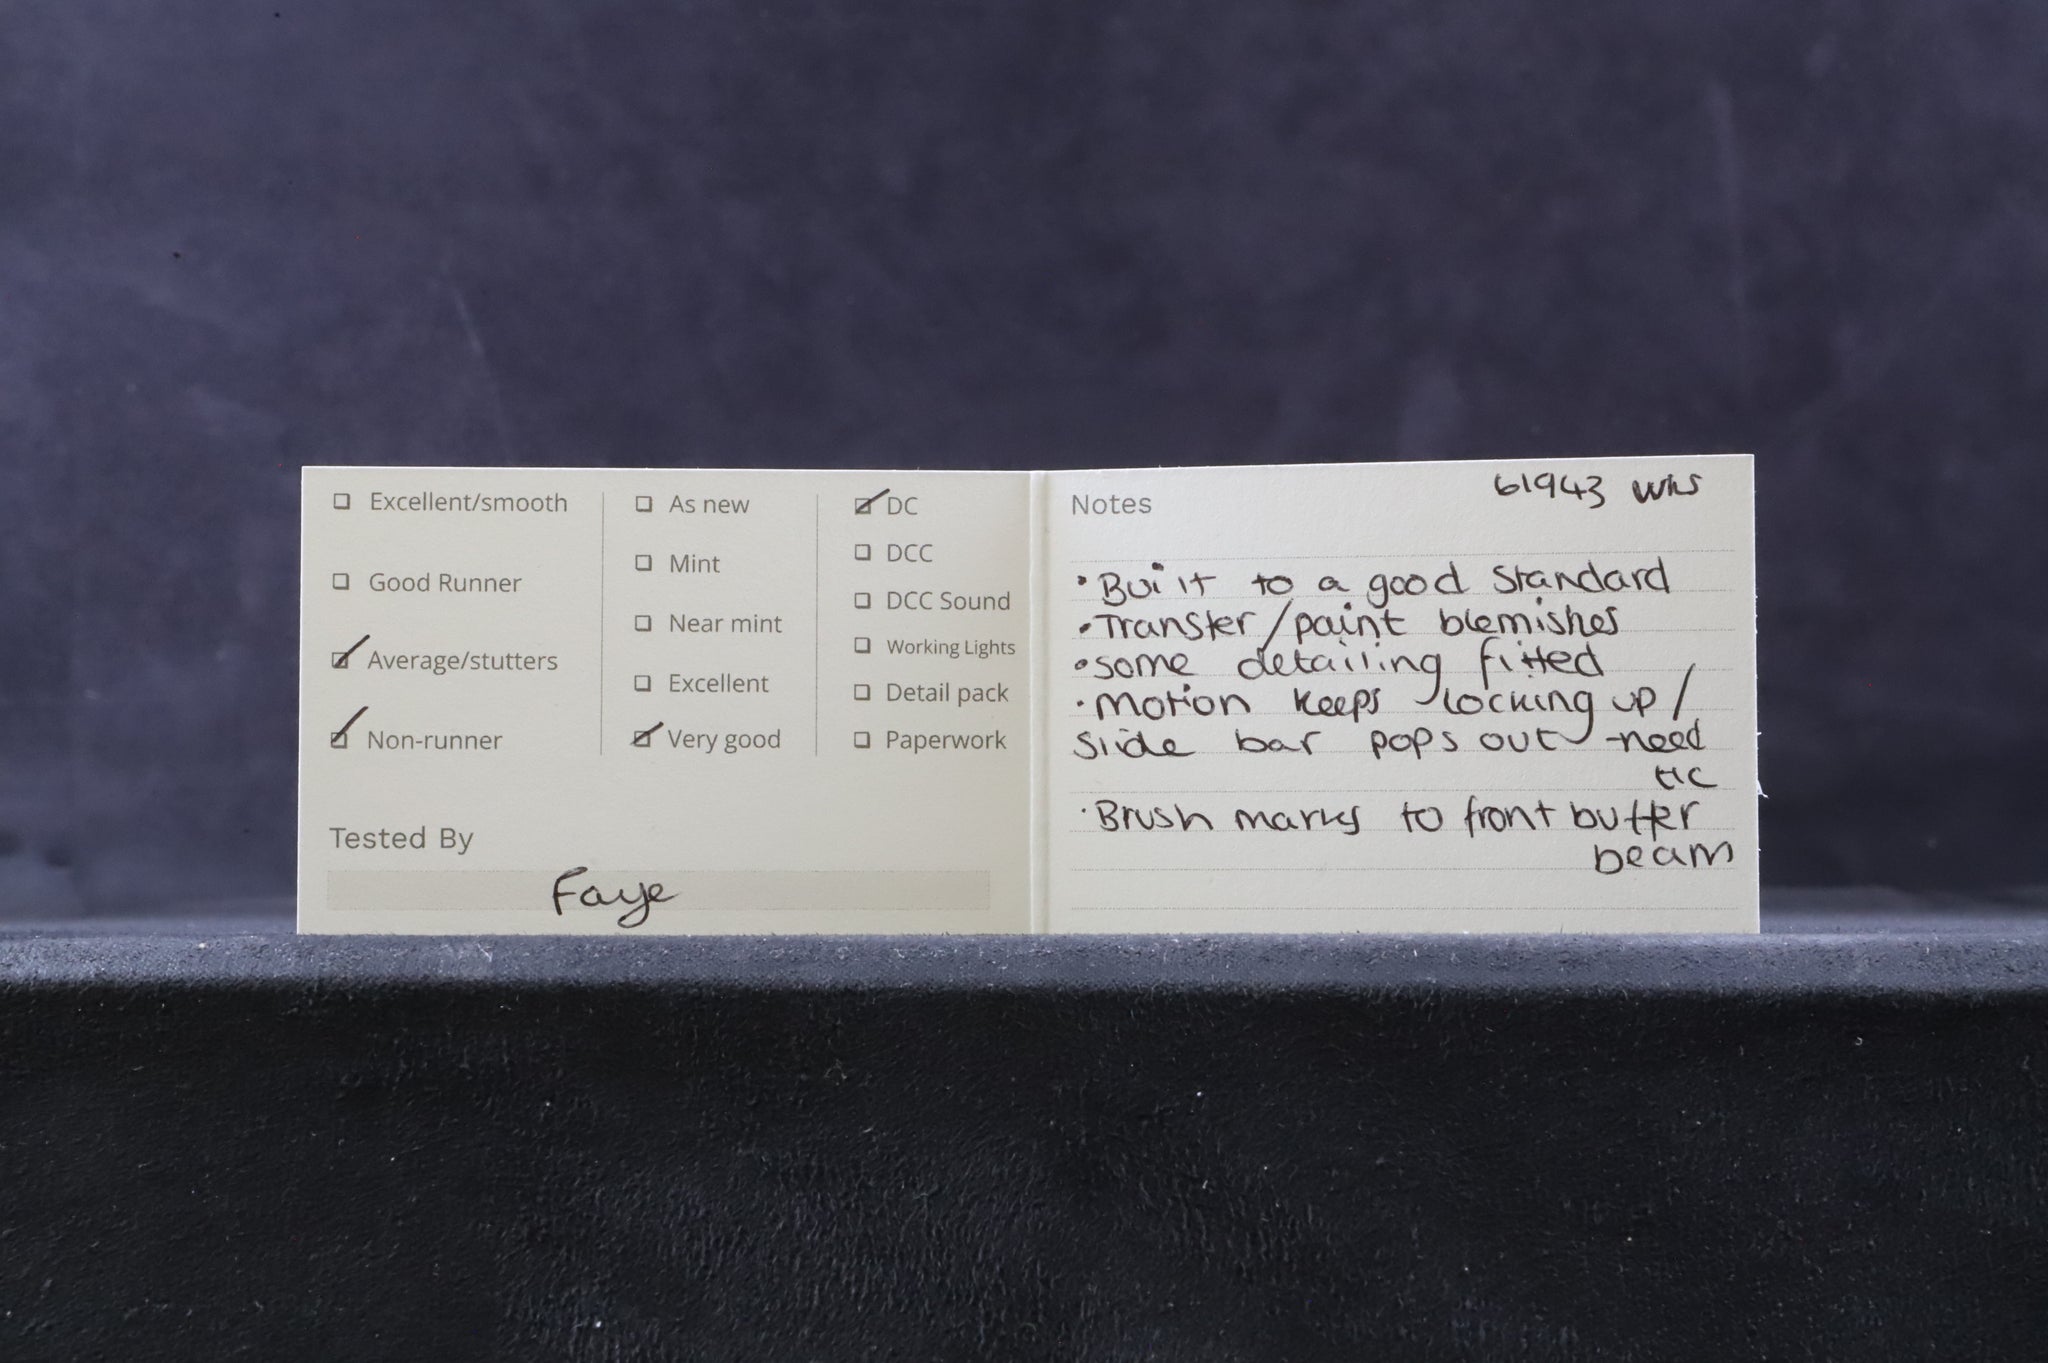 ☐ Excellent/smooth
☐ Good Runner
☑ Average/stutters
☑ Non-runner
☐ As new
☐ Mint
☐ Near mint
☐ Excellent
☑ Very good
☑ DC
☐ DCC
☐ DCC Sound
☐ Working Lights
☐ Detail pack
☐ Paperwork
Tested By
Faye
Notes
61943
• Built to a good standard
• Transfer/paint blemishes
• some detailing fitted
• motion keeps locking up/
slide bar pops out - need
tlc
• Brush marks to front buffer
beam